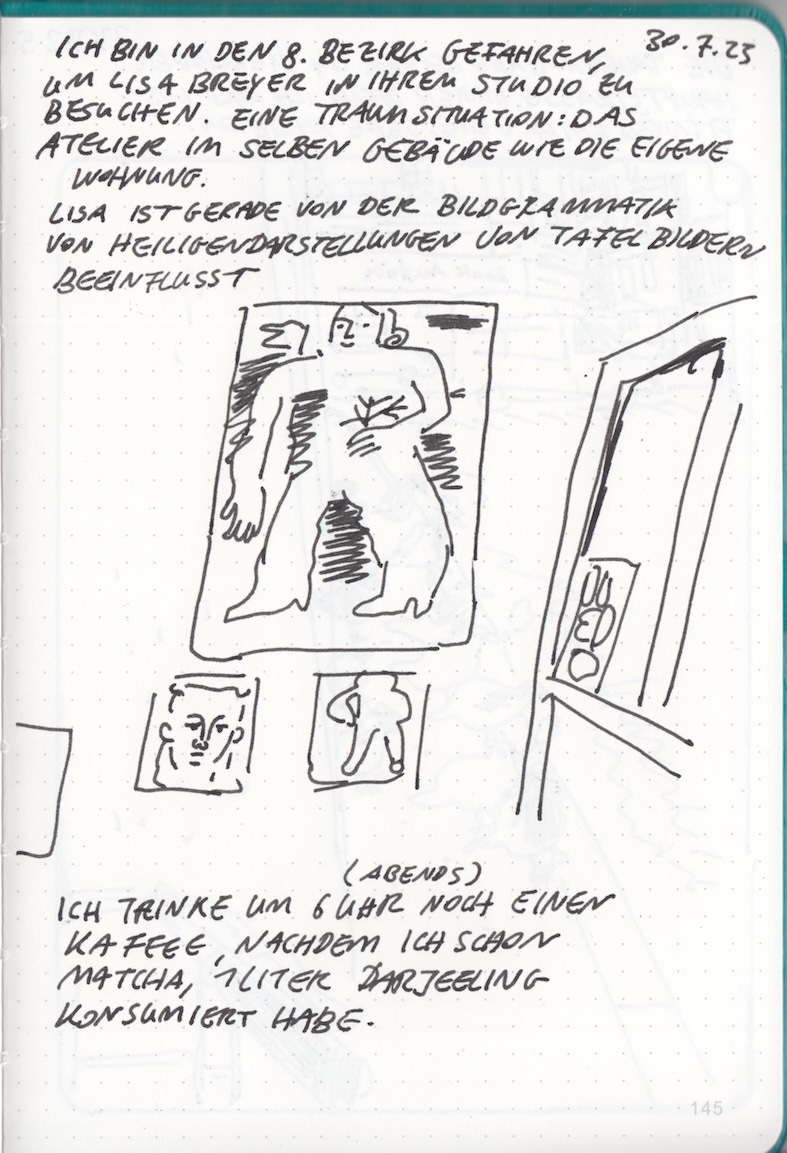 30.7.23
ICH BIN IN DEN 8. BEZIRK GEFAHREN,
UM LISA BREYER IN IHREM STUDIO ZU
BESUCHEN. EINE TRAUMSITUATION: DAS
ATELIER IM SELBEN GEBÄUDE WIE DIE EIGENE
WOHNUNG.
LISA IST GERADE VON DER BILDGRAMMATIK
VON HEILIGENDARSTELLUNGEN VON TAFELBILDERN
BEEINFLUSST
(ABENDS)
ICH TRINKE UM 6 UHR NOCH EINEN
KAFFEE, NACHDEM ICH SCHON
MATCHA, 1 LITER DARJEELING
KONSUMIERT HABE.
145